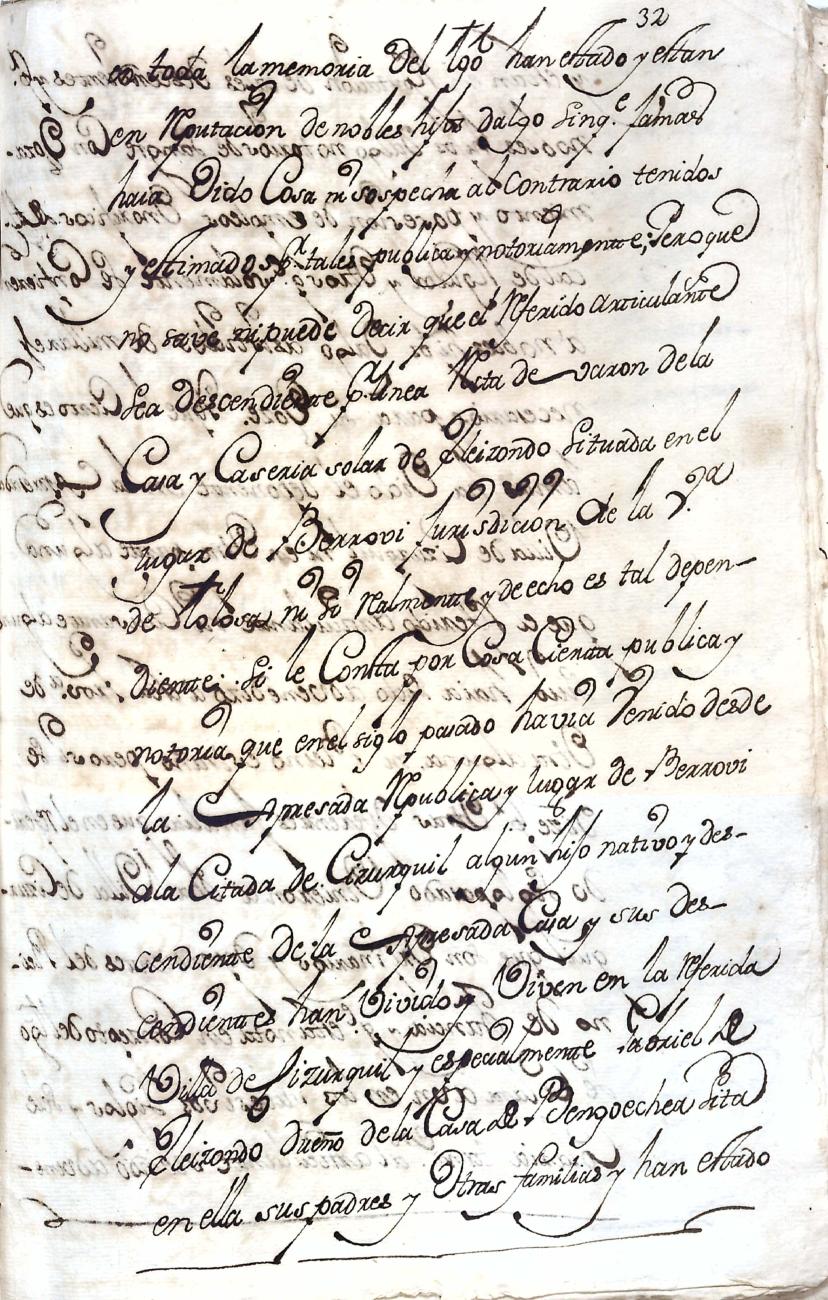 32
en toda la memoria del tpo han estado y estan
en Reputacion de nobles hijos dalgo sin q.e jamas
haia Oido Cosa ni sospecha al contrario tenidos
y estimados p.r tales publica y notoriamente; Pero que
no save ni puede decir que el Referido articulante
sea descendiente p.r linea Recta de varon de la
Casa y Caseria solar de Eleizondo situada en el
lugar de Berrovi Jurisdicion de la V.a
de Tolosa ni si Realmente y de echo es tal depen-
diente; si le Consta por Cosa Cierta publica y
notoria que en el siglo pasado havia Venido desde
la Expresada Republica y lugar de Berrovi
ala Citada de Cizurquil algun hijo nativo y des-
cendiente de la Expresada Casa y sus des-
cendientes han Vivido y Viven en la Referida
Villa de Cizurquil y especialmente Gabriel de
Eleizondo dueño de la Casa de Bengoechea sita
en ella sus padres y Otras familias y han estado